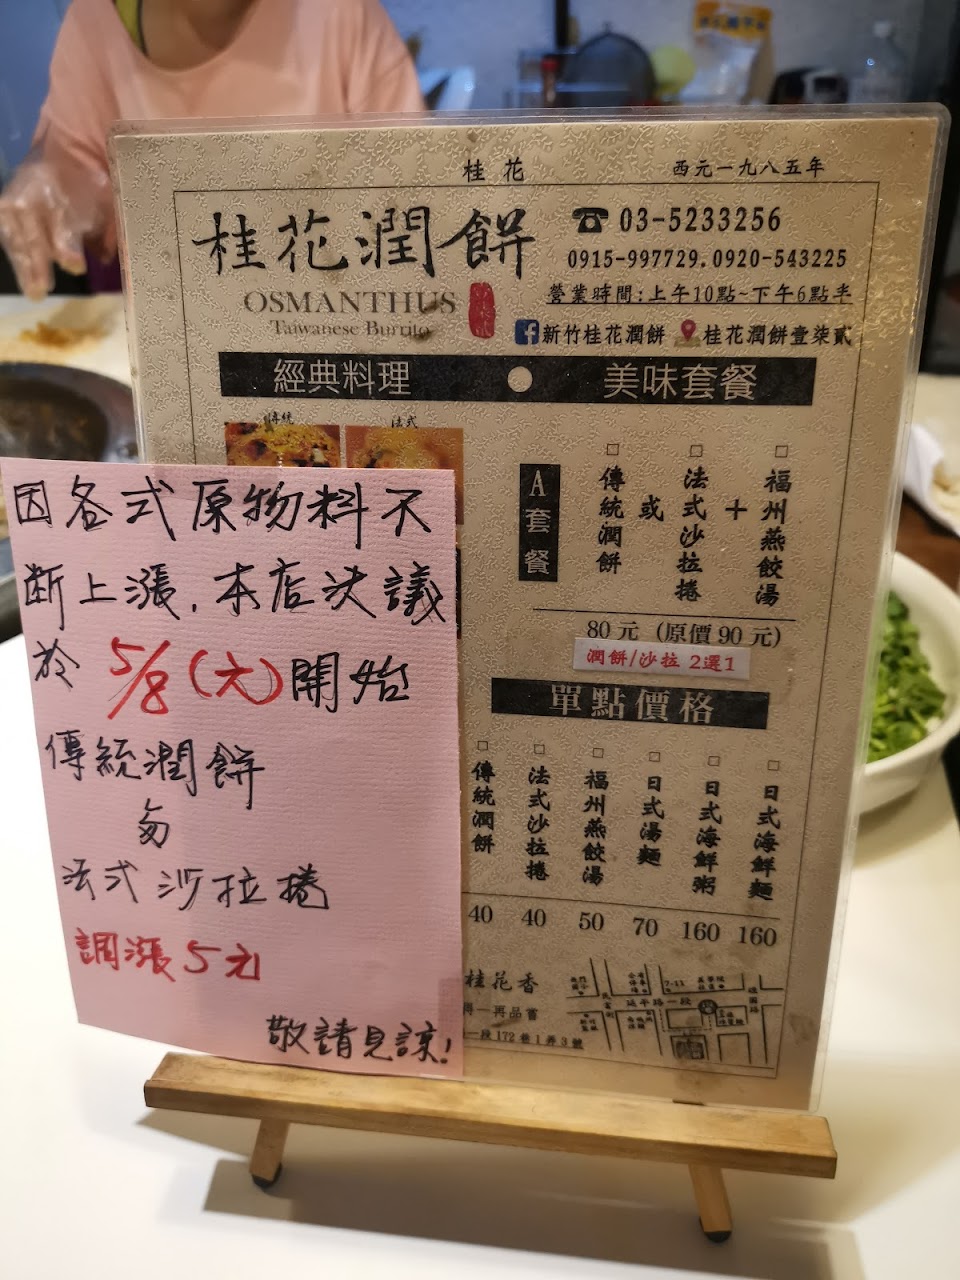 桂花
西元一九八五年
桂花潤餅
OSMANTHUS
Taiwanese Burrito
03-5233256
0915-997729.0920-543225
營業時間:上午10點~下午6點半
新竹桂花潤餅
桂花潤餅壹柒貳
經典料理
美味套餐
傳統
法式
A套餐
傳統潤餅
或
法式沙拉捲
+
福州燕餃湯
80元 (原價90元)
潤餅/沙拉 2選1
單點價格
傳統潤餅
法式沙拉捲
福州燕餃湯
日式湯麵
日式海鮮粥
日式海鮮麵
40 40 50 70 160 160
桂花香
得一再品嘗
一段172巷1弄3號
7-11
延平路一段
因各式原物料不
斷上漲,本店決議
於 5/8(六)開始
傳統潤餅
勿
法式沙拉捲
調漲5元
敬請見諒!